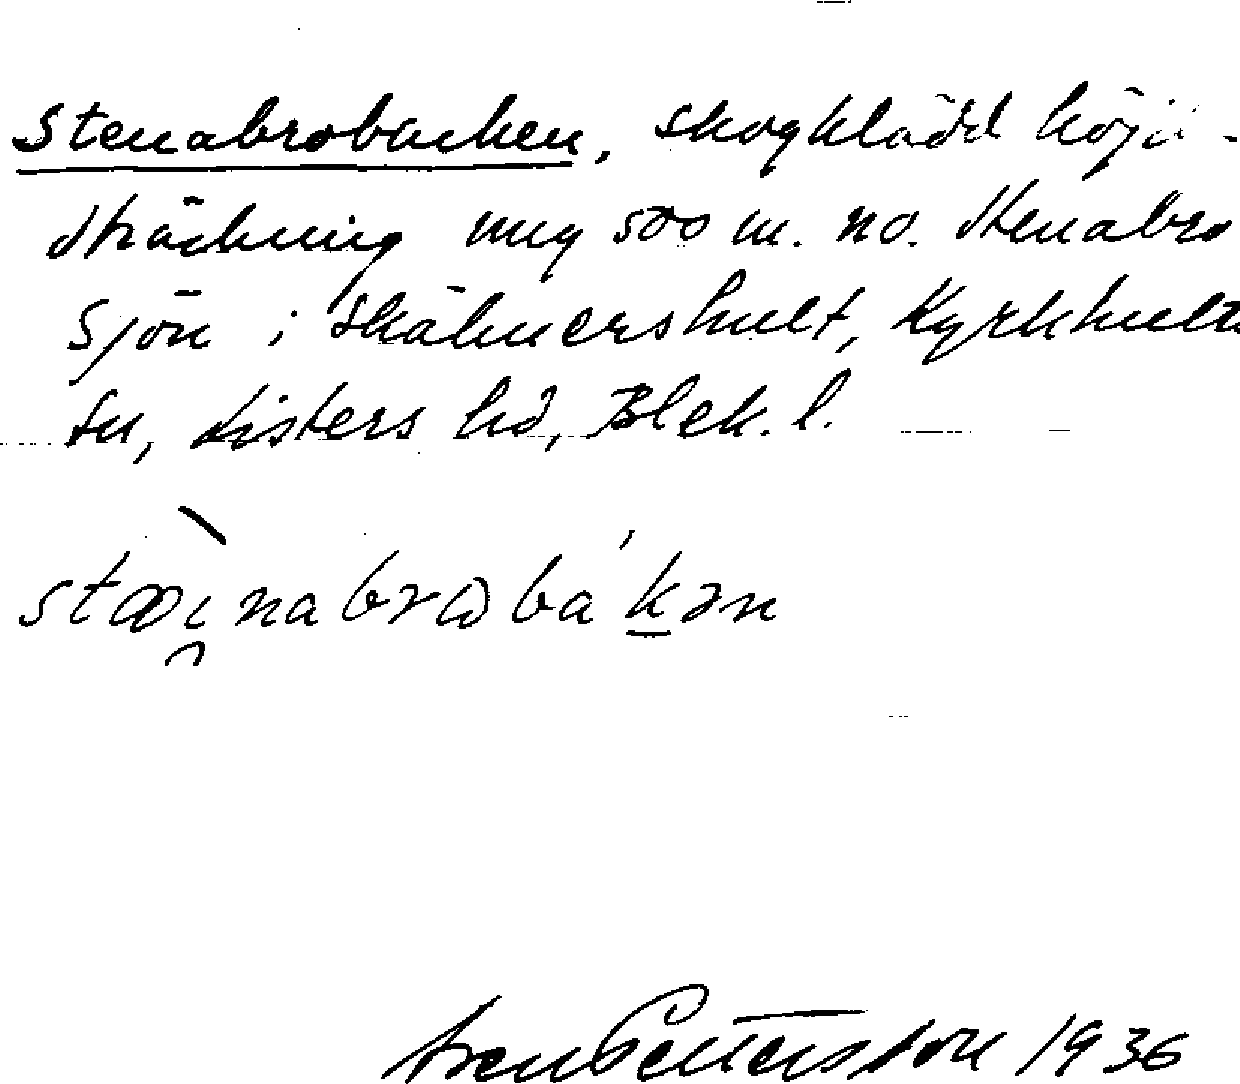 Stenabrobacken, skogklädd höjd-
sträckning ung 500 m. no. Stenabro
Sjön i Skälmershult, Kyrkhults
sn, Listers hd, Blek. l.
stæi̯nabrωba'k̠ən
Sven Pettersson 1936